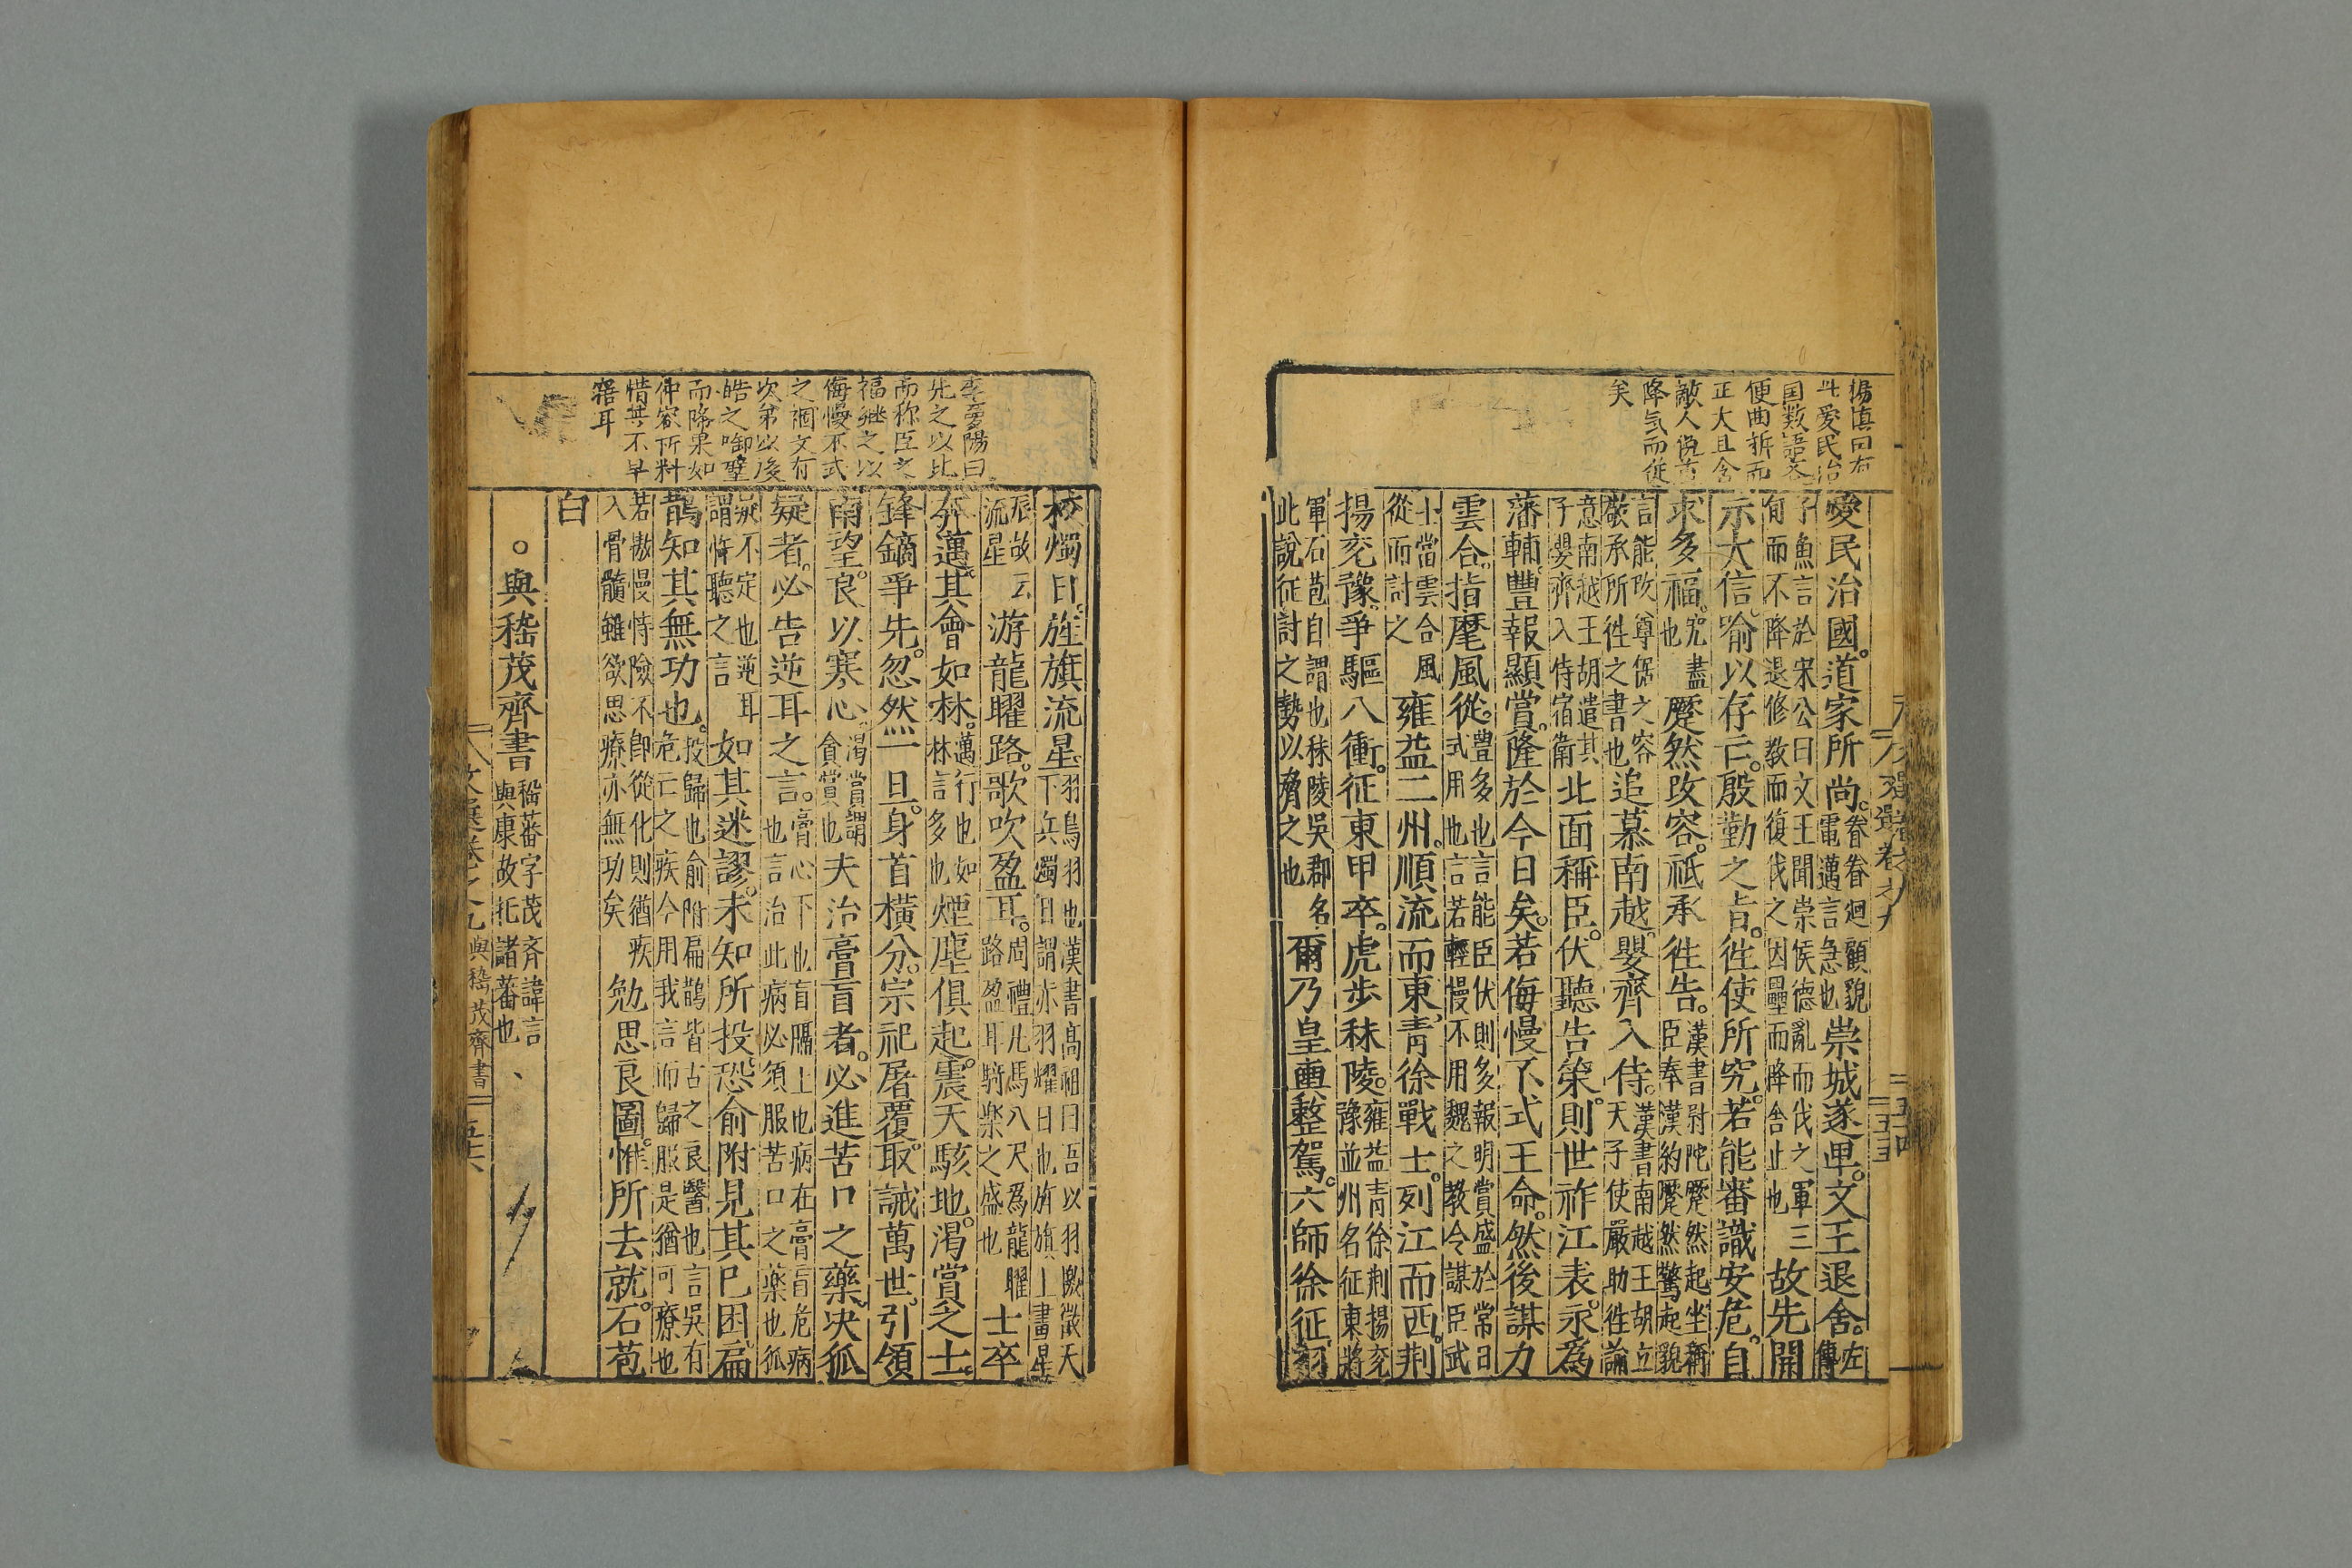 楊慎曰有
斗愛民治
国数語文
便曲折而
正大且令
敵人
降氣而從
矣
愛民治國。道家所尚。眷眷迴顧貌電邁言急也崇城遂卑。文王退舍。左傳
子魚言於宋公曰文王聞崇侯德亂而伐之軍三
旬而不降退修教而復伐之因壘而降舍止也故先開
示大信。喻以存亡。殷勤之旨。徃使所究。若能審識安危。自
求多福。究盡也蹷然改容。祗承徃告。漢書尉陀蹷然起坐稱臣奉漢約蹷然驚起貌
言能改尊倨之容敬承所徃之書也追慕南越。嬰齊入侍。漢書南越王胡立天子使嚴助徃諭
意南越王胡遣其子嬰齊入侍宿衛北面稱臣。伏聽告策。則世祚江表。永為
藩輔。豐報顯賞。隆於今日矣。若侮慢不式王命。然後謀力
雲合。指麾風從。豊多也言能臣伏則多報明賞盛於常日式用也言若輕慢不用魏之教令謀臣武
士當雲合風從而討之雍益二州。順流而東。青徐戰士。列江而西。荆
揚兖豫。爭驅八衝。征東甲卒。虎步秣陵。雍益青徐荆揚兖豫並州名征東將
軍石苞自謂也秣陵吳郡名此說征討之勢以脅之也爾乃皇輿整駕。六師徐征。羽
文選卷之九
李夢陽曰
先之以比
而称臣之
福継之以
侮慢不式
之禍文有
次第以後
皓之啣璧
而降果如
仲容所料
惜其不早
寤耳
校燭日。旌旗流星羽鳥羽也漢書高祖曰吾以羽檄徵天下兵燭日謂亦羽耀日也旂旗上畫星
辰故云流星游龍曜路。歌吹盈耳。周禮凡馬八尺爲龍曜路盈耳騎樂之盛也士卒
奔邁。其會如林。邁行也如林言多也煙塵俱起。震天駭地。渴賞之士。
鋒鏑爭先。忽然一旦。身首橫分。宗祀屠覆。取誡萬世。引領
南望。良以寒心。渴賞謂貪賞也夫治膏肓者。必進苦口之藥。决狐
疑者。必告逆耳之言。膏心下也肓膈上也病在膏肓危病也言治此病必須服苦口之藥也狐
疑不定也逆耳謂忤聽之言如其迷謬。未知所投。恐俞附見其已困。扁
鵲知其無功也。投歸也俞附扁鵲皆古之良醫也言吳有危亡之疾今用我言而歸服是猶可療也
若傲慢恃險不即從化則猶疾入骨髓雖欲思療亦無功矣勉思良圖。惟所去就。石苞
白
。與嵇茂齊書嵇蕃字茂齊諱言與康故托諸蕃也
與嵇茂齊書